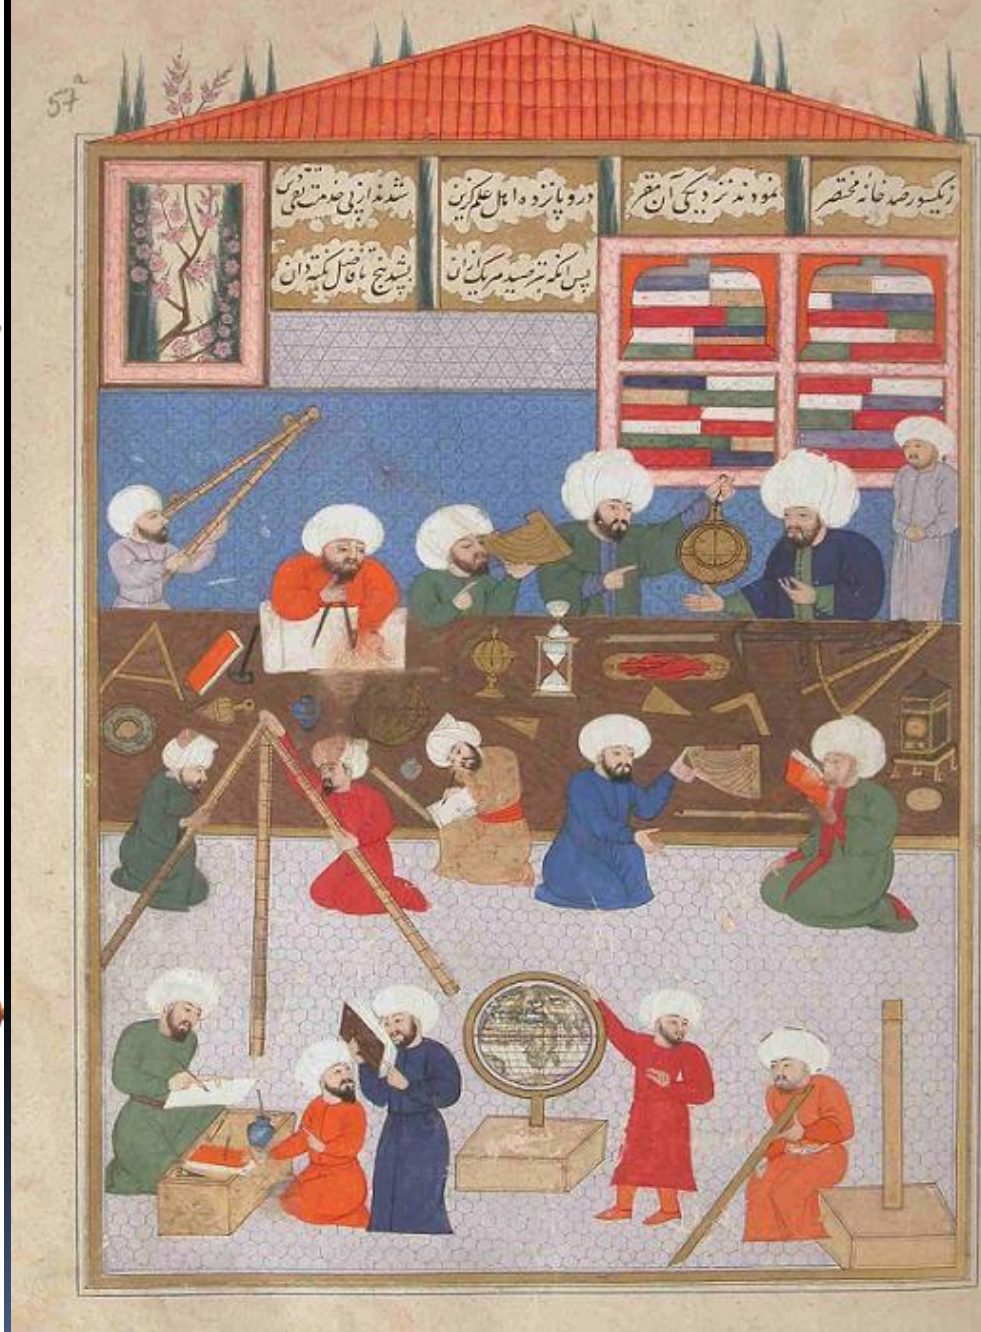 57a
زیکسو رصد خانهٔ مختصر
نمودند نزدیکی آن مقر
درو پانزده اهل علم گزین
شدند از پی خدمت تقی دین
پس انکه بترصید هر یک ازان
پنج فاضل نکته دان